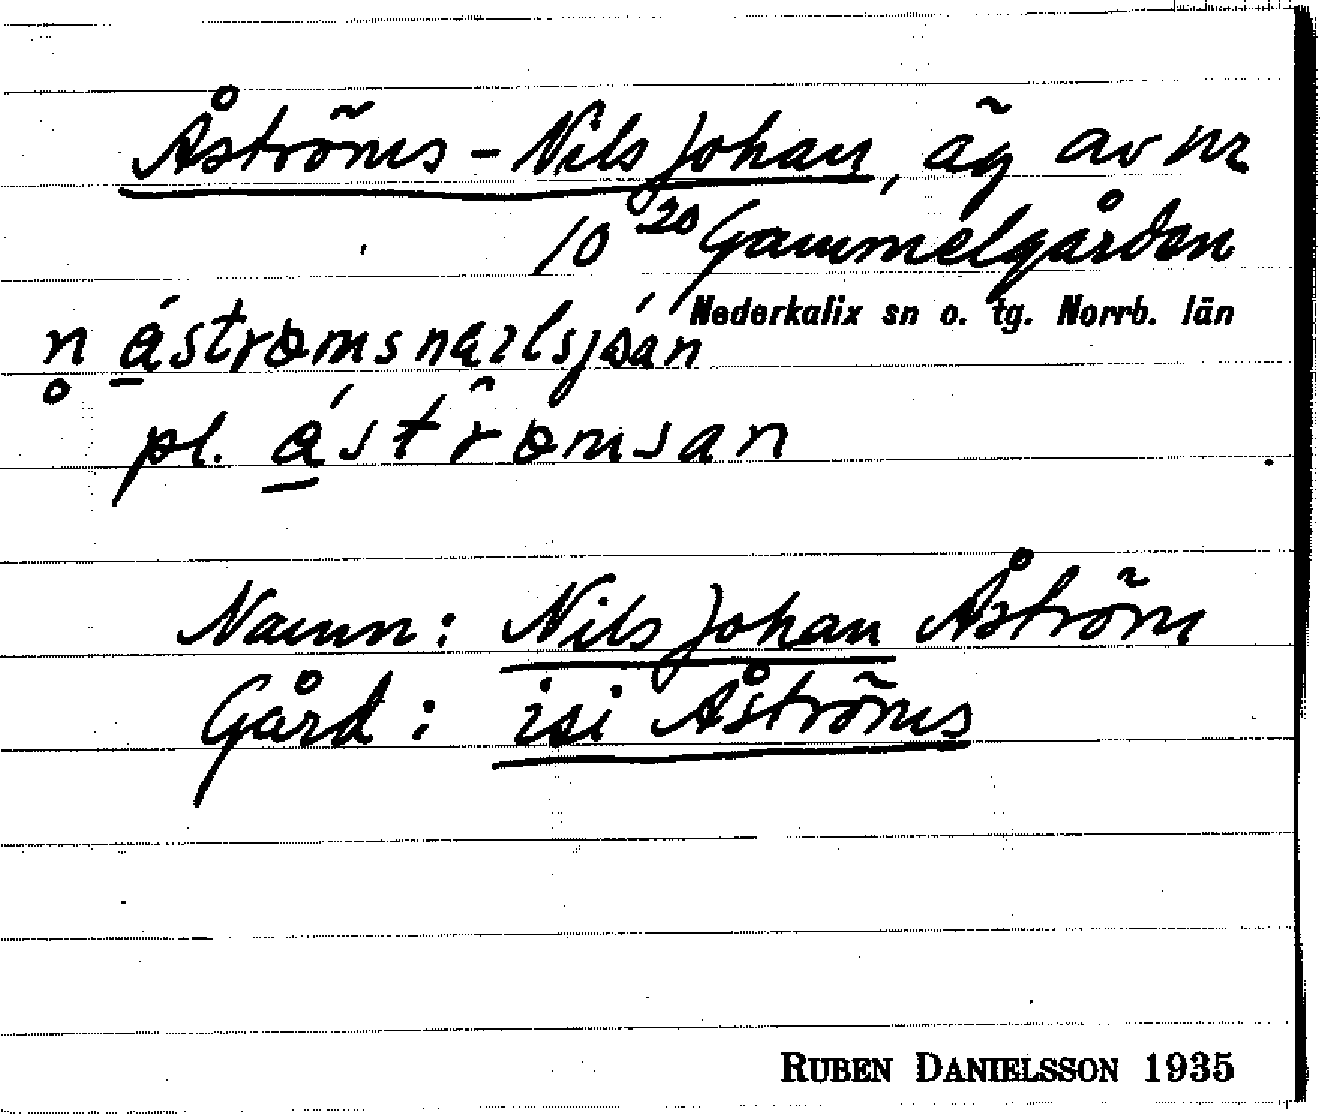 Åströms-Nils Johan, äg av nr
10 20 Gammelgården
Nederkalix sn o. tg. Norrb. län
pl. áströmsan
Namn: Nils Johan Åström
Gård: isi Åströms
RUBEN DANIELSSON 1935